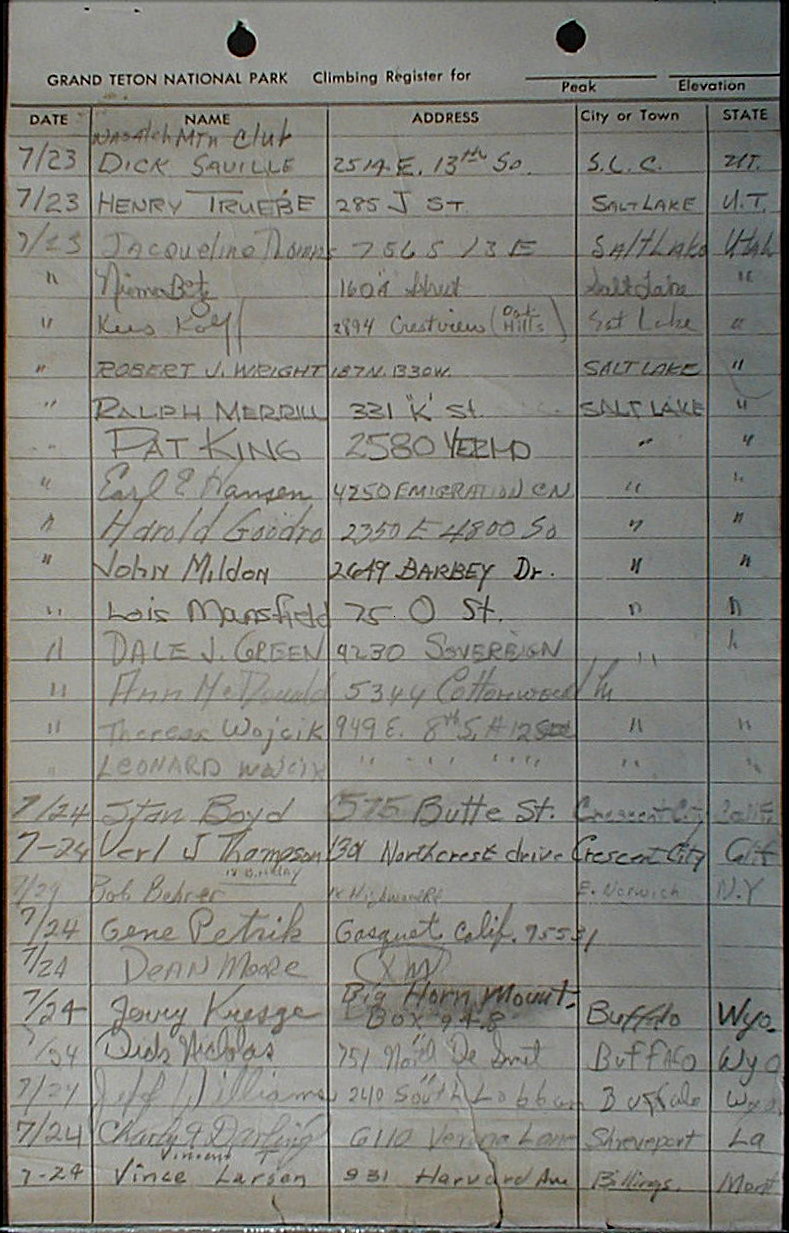 GRAND TETON NATIONAL PARK Climbing Register for
Peak Elevation
DATE NAME ADDRESS City or Town STATE
Wasatch Mtn Club
7/23 DICK SAVILLE 2514 E. 13th So. S.L.C. UT.
7/23 HENRY TRUEBE 285 J ST. SALT LAKE U.T.
7/23 Jacqueline 756 S 13 E Salt Lake Utah
" "A" Street Salt Lake "
" Kees Kolff 2894 Crestview (Oak Hills) Salt Lake "
" ROBERT J. WRIGHT 187 N. 1330 W. SALT LAKE "
" RALPH MERRILL 331 "K" St. SALT LAKE "
" PAT KING 2580 " "
" Earl E Hansen 4250 EMIGRATION CN " "
" Harold Goodro 2350 E 4800 So " "
" John Mildon 2649 BARBEY Dr. " "
" Lois Mansfield 75 O St. " "
" DALE J. GREEN 4230 SOVEREIGN " "
" Ann McDonald 5344 Cottonwood Ln
" Theresa Wojcik 949 E. 8th S. # 12 " "
" LEONARD WOJCIK " " " " " " " "
7/24 Stan Boyd 575 Butte St. Crescent City Calif
7-24 Verl J Thompson 1301 Northcrest drive Crescent City Calif
Bob Behrer Highland Rd E. Norwich N.Y
7/24 Gene Petrik Gasquet Calif. 95531
7/24 DEAN MOORE
7/24 Jerry Kresge Big Horn Mount. Buffalo Wyo.
Box 948
7/24 Dick Nicholas 751 North De Smet BUFFALO Wyo
7/24 Jeff Williams 240 South Lobban Buffalo Wyo
7/24 Charly Darling 6110 Lane Shreveport La
Vincent T
7-24 Vince Larsen 931 Harvard Ave Billings. Mont